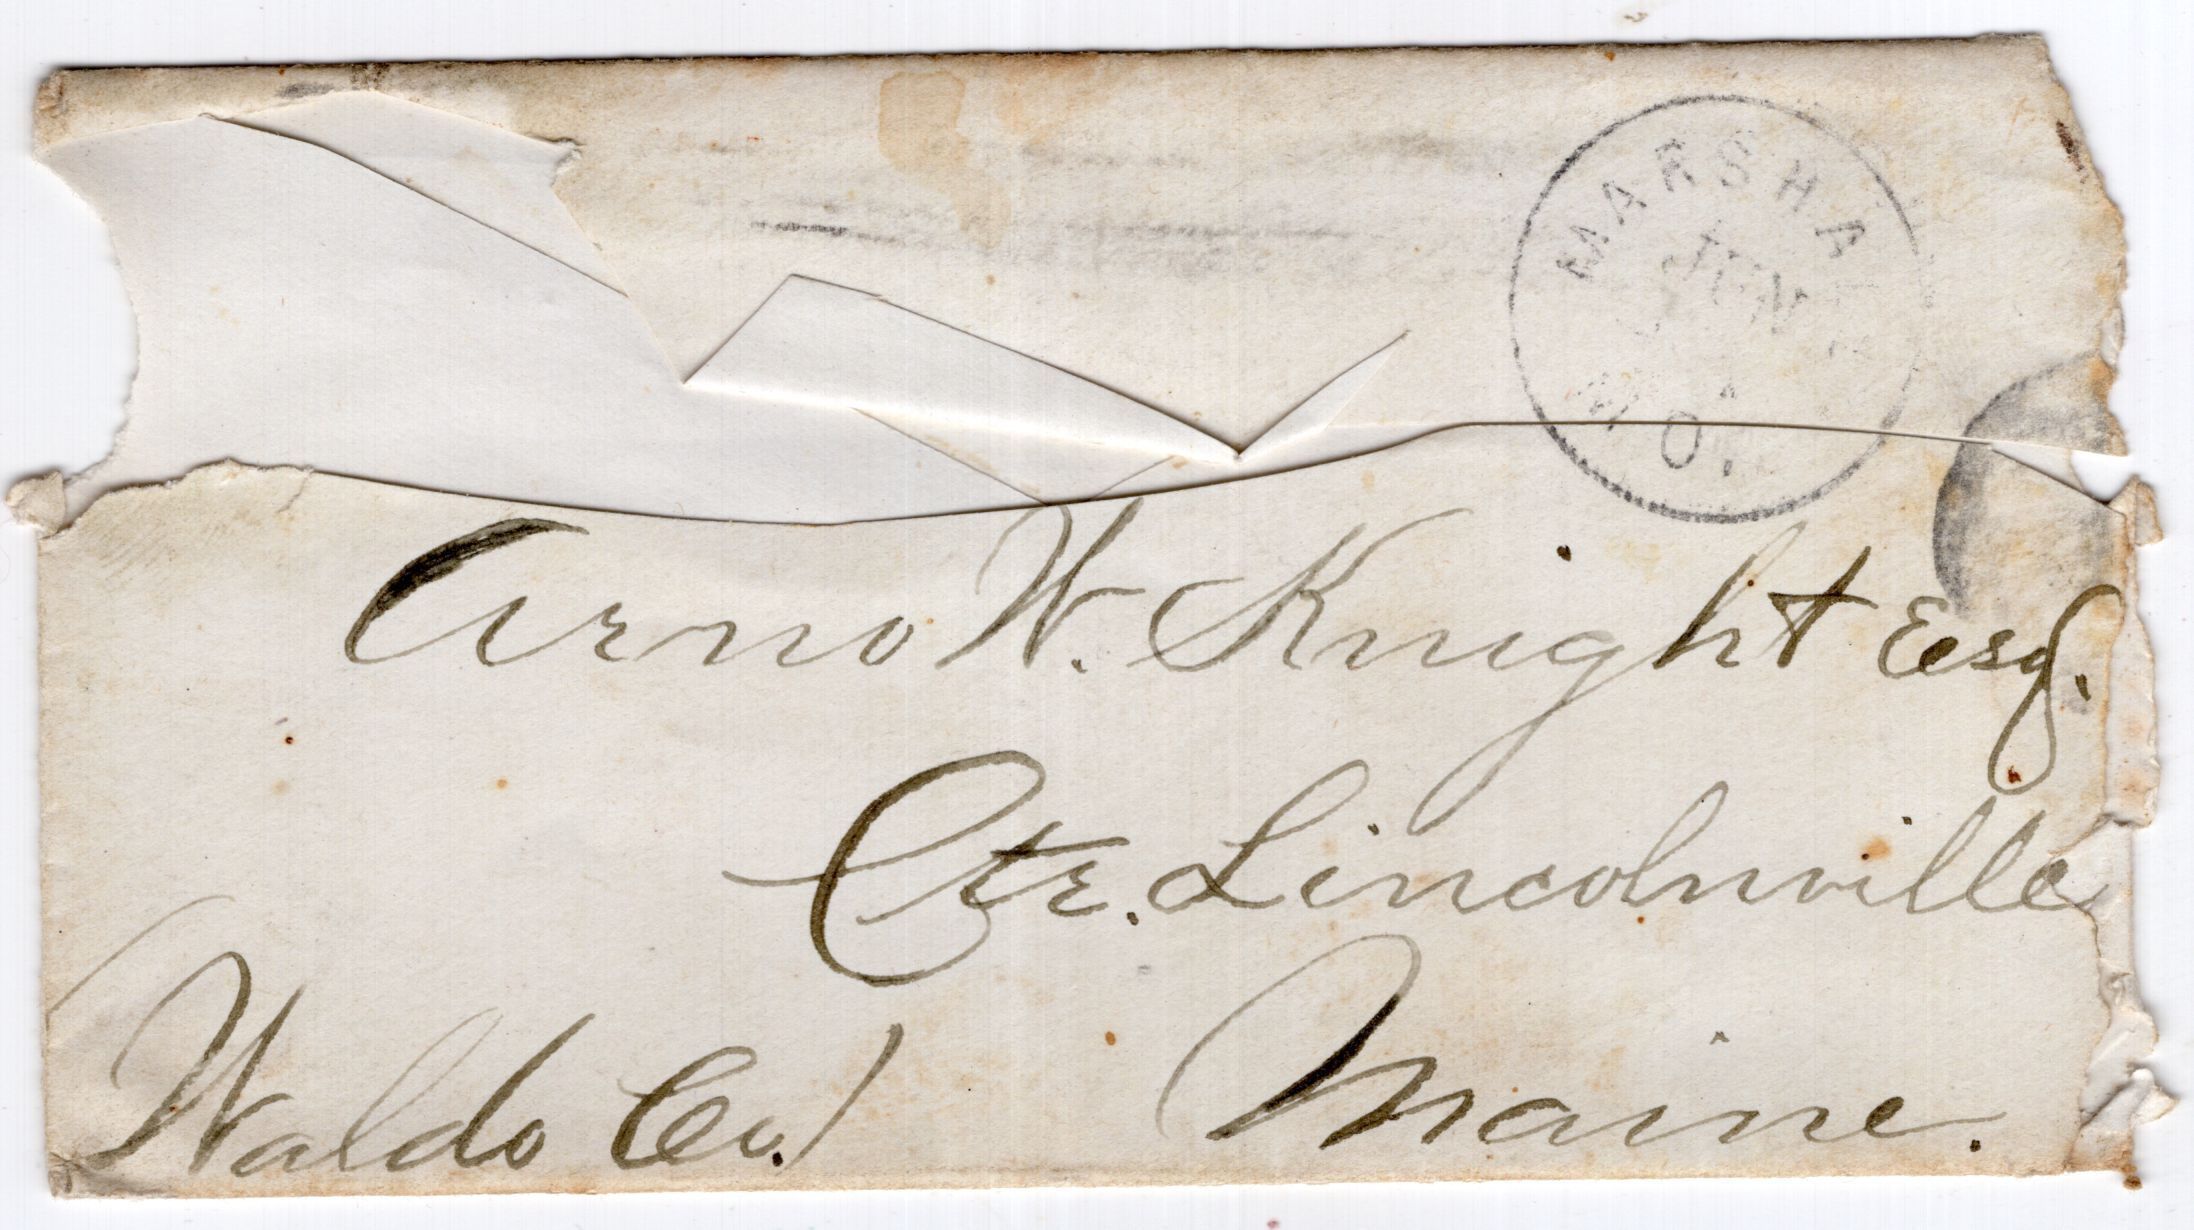 MARSHA
JUN
MO.
Arno W. Knight Esq.
Ctr. Lincolnville
Waldo Co. Maine.